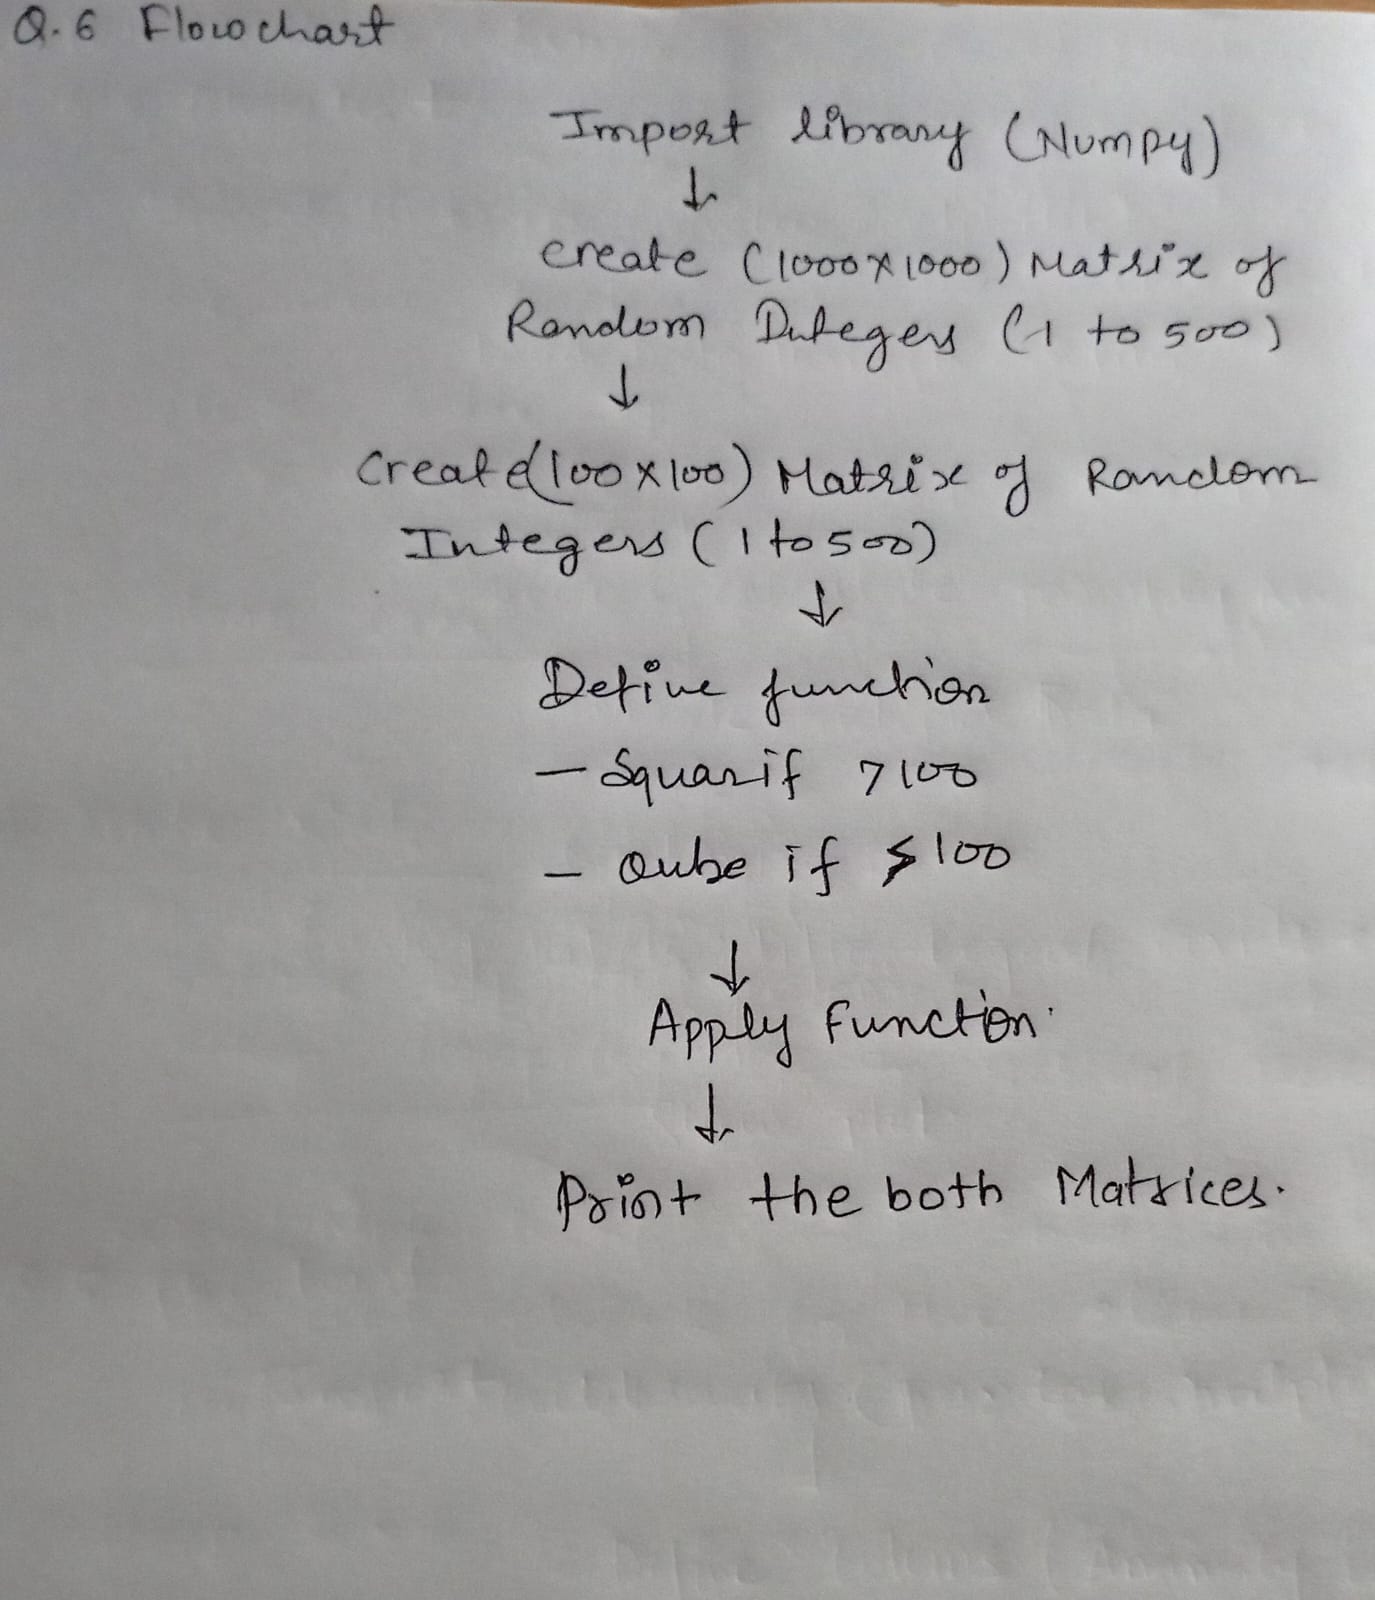 Q.6 Flowchart
Import library (Numpy)
↓
create (1000×1000) Matrix of
Random Integers (1 to 500)
↓
Create(100×100) Matrix of Random
Integers (1 to 500)
↓
Define function
- Squarif >100
- Qube if ≤100
↓
Apply Function.
↓
Print the both Matrices.